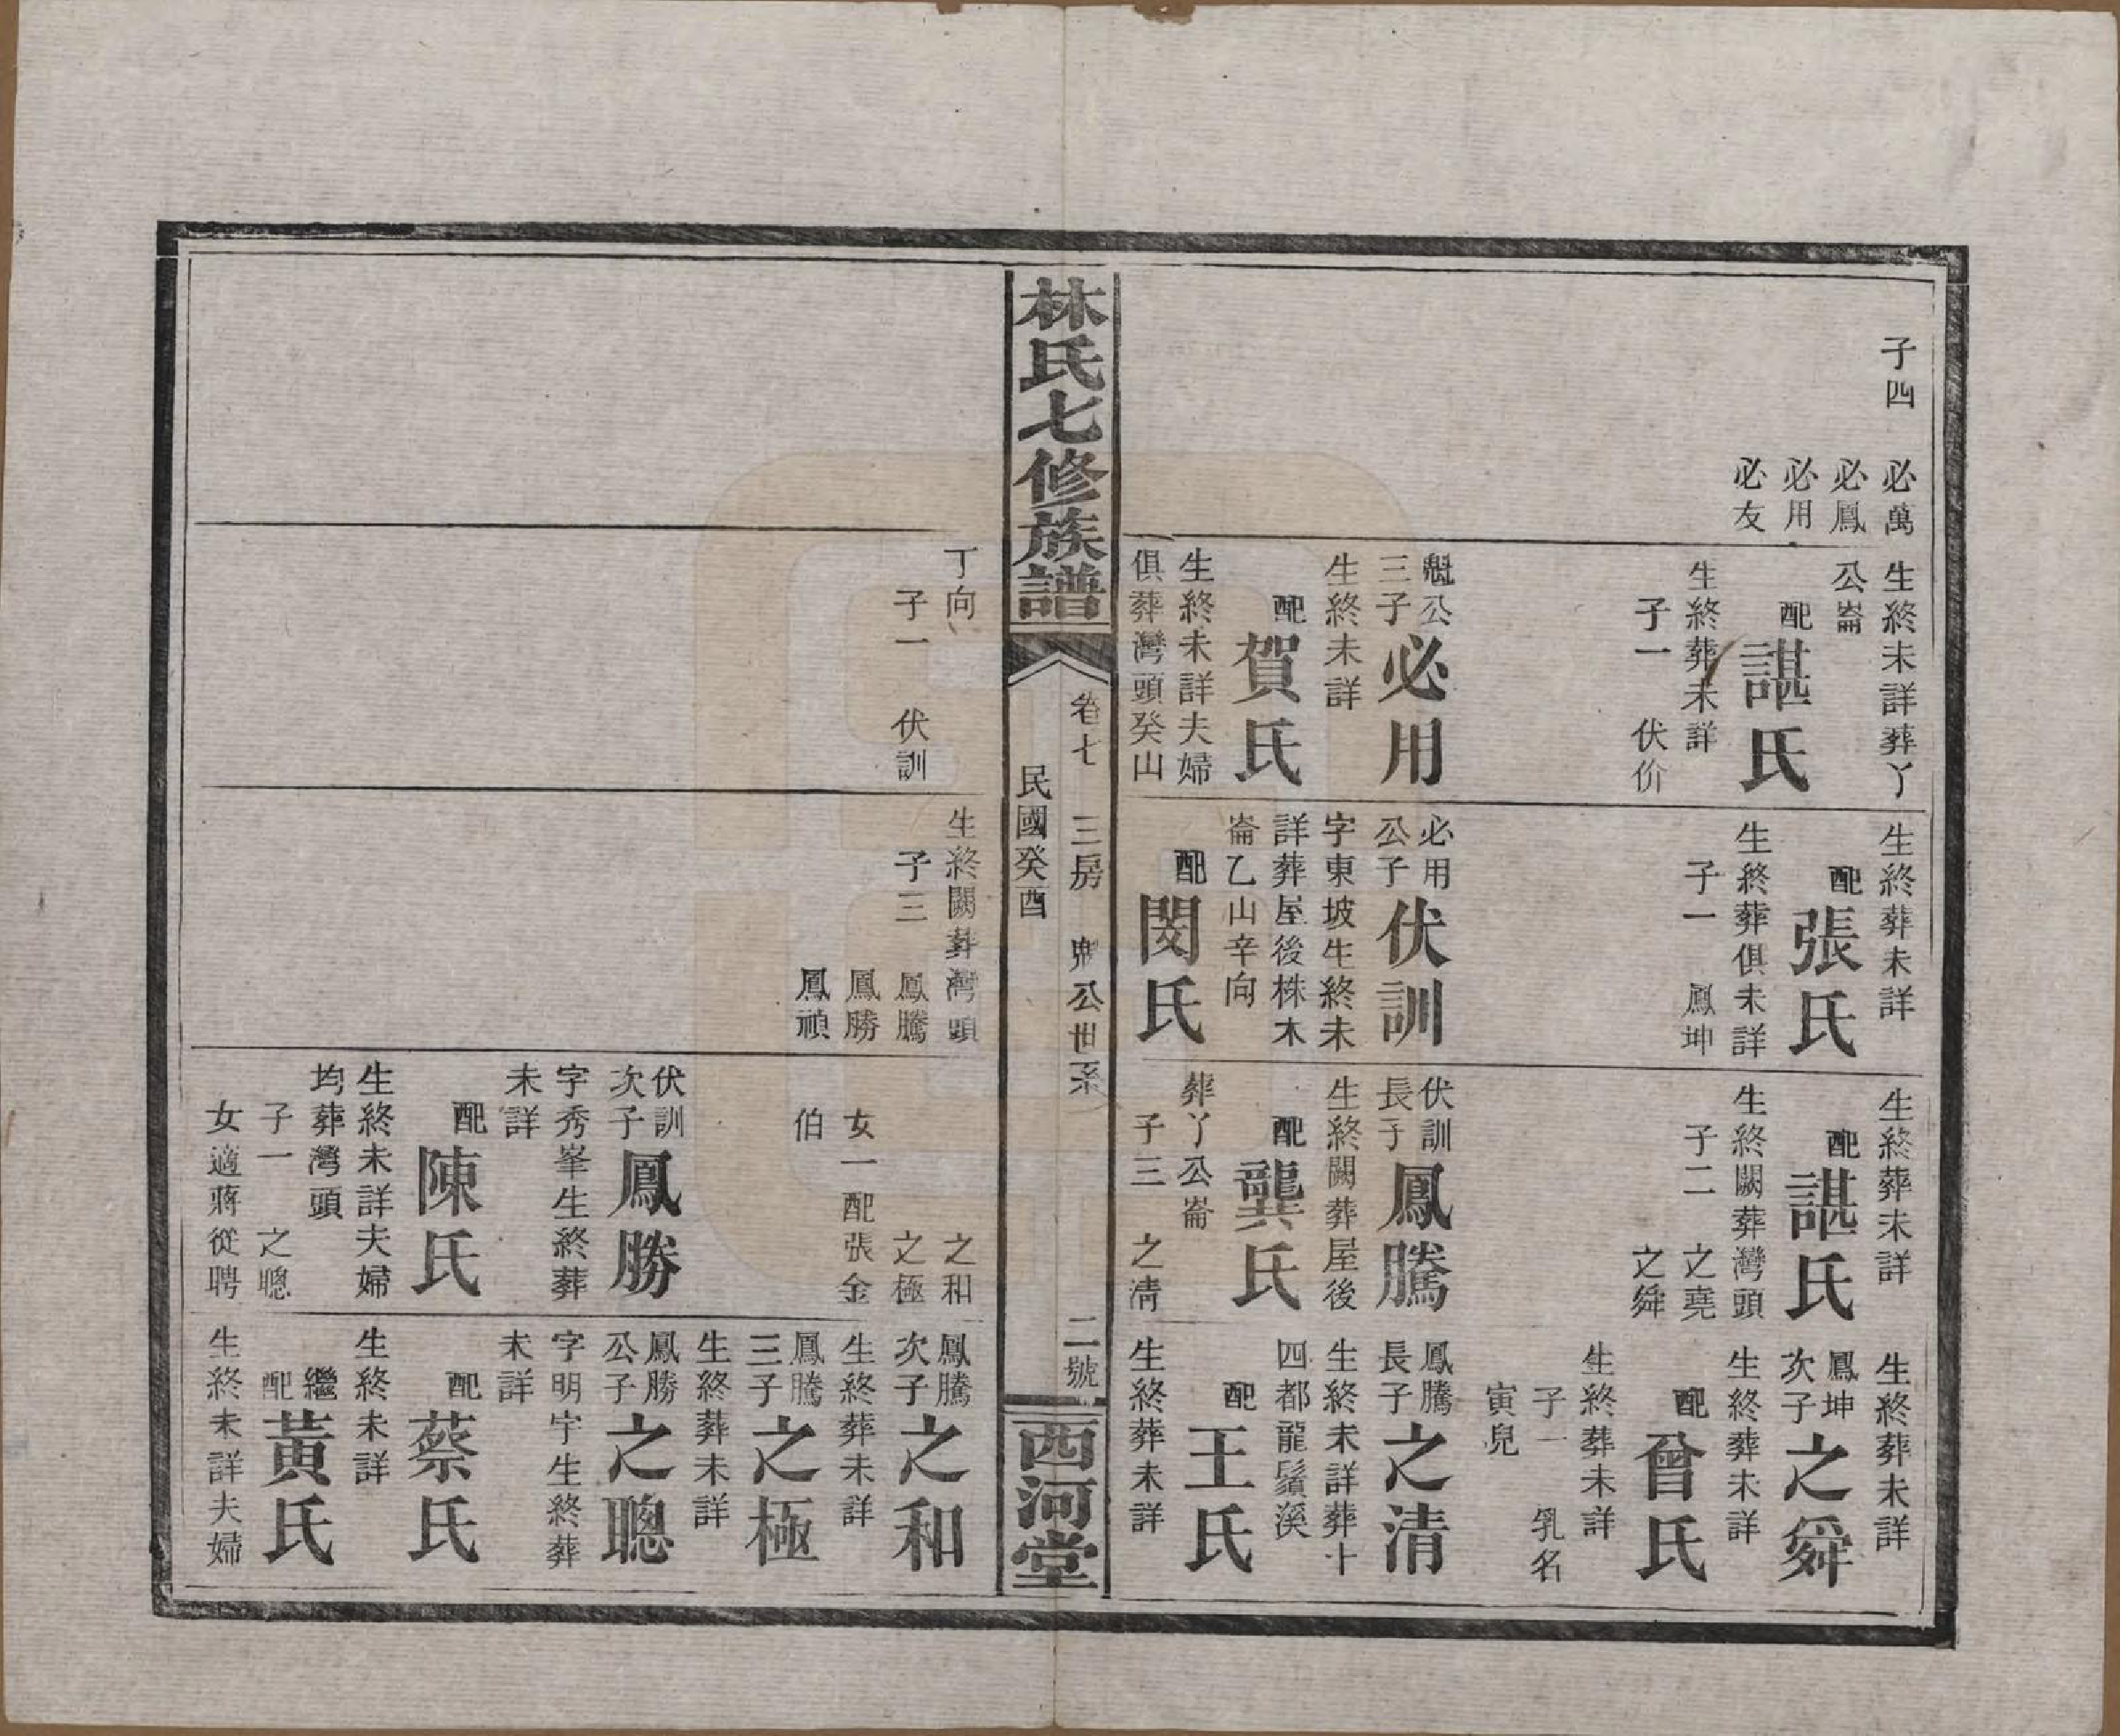 子四
必萬
必鳳
必用
必友
生終未詳葬丫
公崙
配諶氏
生終葬未詳
子一 伏价
魁公
三子必用
生終未詳
配賀氏
生終未詳夫婦
俱葬灣頭癸山
生終葬未詳
配張氏
生終葬俱未詳
子一 鳳坤
必用
公子伏訓
字東坡生終未
詳葬屋後株木
崙乙山辛向
配閔氏
生終葬未詳
配諶氏
生終闕葬灣頭
子二 之堯
之舜
伏訓
長子鳳騰
生終闕葬屋後
配龔氏
葬丫公崙
子三 之清
生終葬未詳
鳳坤
次子之舜
生終葬未詳
配曾氏
生終葬未詳
子一 乳名
寅兒
鳳騰
長子之清
生終未詳葬十
四都龍鬚溪
配王氏
生終葬未詳
林氏七修族譜
卷七 三房 魁公世系 二號
民國癸酉
西河堂
丁向
子一 伏訓
生終闕葬灣頭
子三 鳳騰
鳳勝
鳳禎
之和
之極
女一配張金
伯
伏訓
次子鳳勝
字秀峯生終葬
未詳
配陳氏
生終未詳夫婦
均葬灣頭
子一 之聰
女適蔣從聘
鳳騰
次子之和
生終葬未詳
鳳騰
三子之極
生終葬未詳
鳳勝
公子之聰
字明宇生終葬
未詳
配蔡氏
生終未詳
繼
配黃氏
生終未詳夫婦